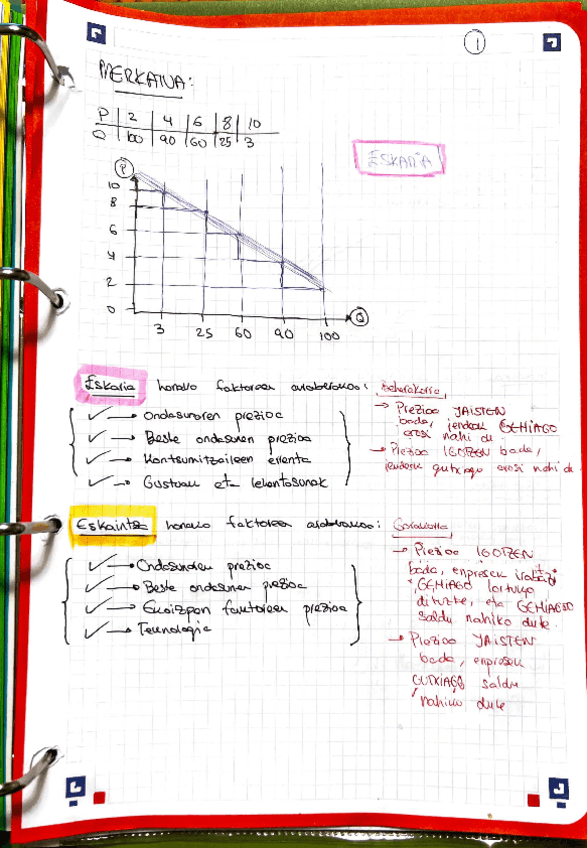 1
MERKATUA:
P 2 4 6 8 10
Q 100 90 60 25 3
ESKARIA
P
10
8
6
4
2
0
3 25 60 90 100
Q
Eskaria honako faktoreen araberakoa:
→ Ondasunaren prezioa
→ Beste ondasunen prezioa
→ Kontsumitzaileen errenta
→ Gustuak eta lehentasunak
Beherakorra
→ Prezioa JAISTEN
bada, jendeak GEHIAGO
erosi nahi du
→ Prezioa IGOTZEN bada,
jendeak gutxiago erosi nahi du
Eskaintza honako faktoreen araberakoa:
→ Ondasunaren prezioa
→ Beste ondasunen prezioa
→ Ekoizpen faktoreen prezioa
→ Teknologia
Gorakorra
→ Prezioa IGOTZEN
bada, enpresek irabazi
GEHIAGO lortuko
dituzte, eta GEHIAGO
saldu nahiko dute.
→ Prezioa JAISTEN
bada, enpresek
GUTXIAGO saldu
nahiko dute